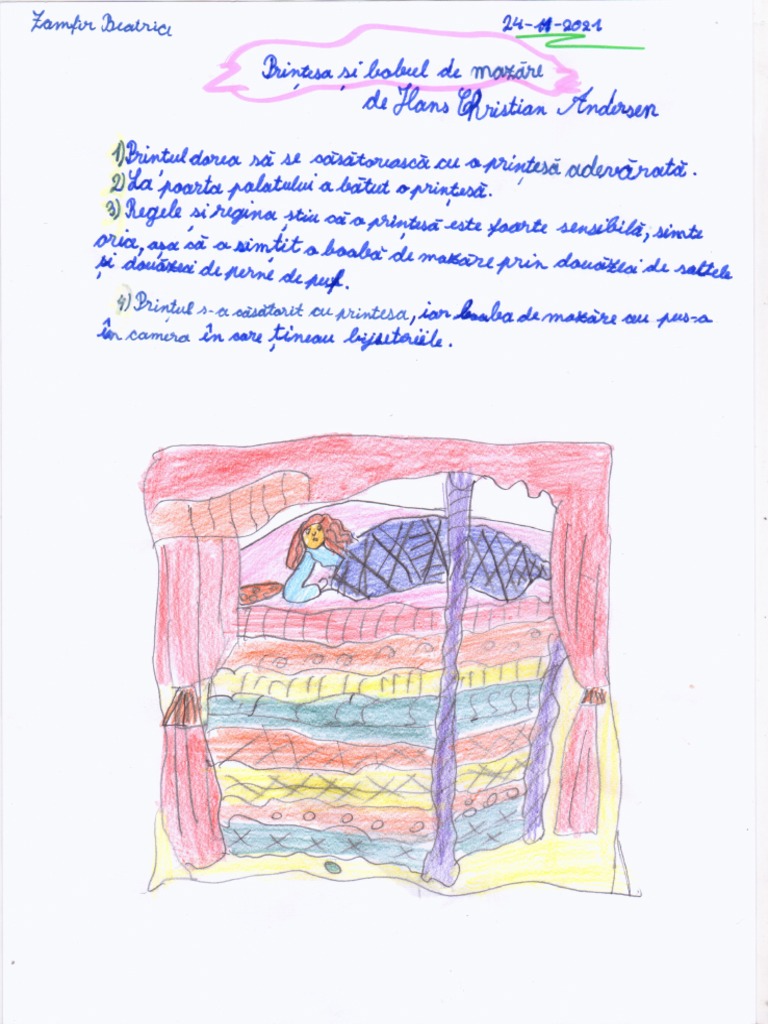 Zamfir Beatrice
24-11-2021
Prințesa și bobul de mazăre
de Hans Christian Andersen
1) Prințul dorea să se căsătorească cu o prințesă adevărată.
2) La poarta palatului a bătut o prințesă.
3) Regele și regina știu că o prințesă este foarte sensibilă, simte
orice, așa că a simțit o boabă de mazăre prin douăzeci de saltele
și douăzeci de perne de puf.
4) Prințul s-a căsătorit cu printesa, iar boaba de mazăre au pus-o
în camera în care țineau bijuteriile.